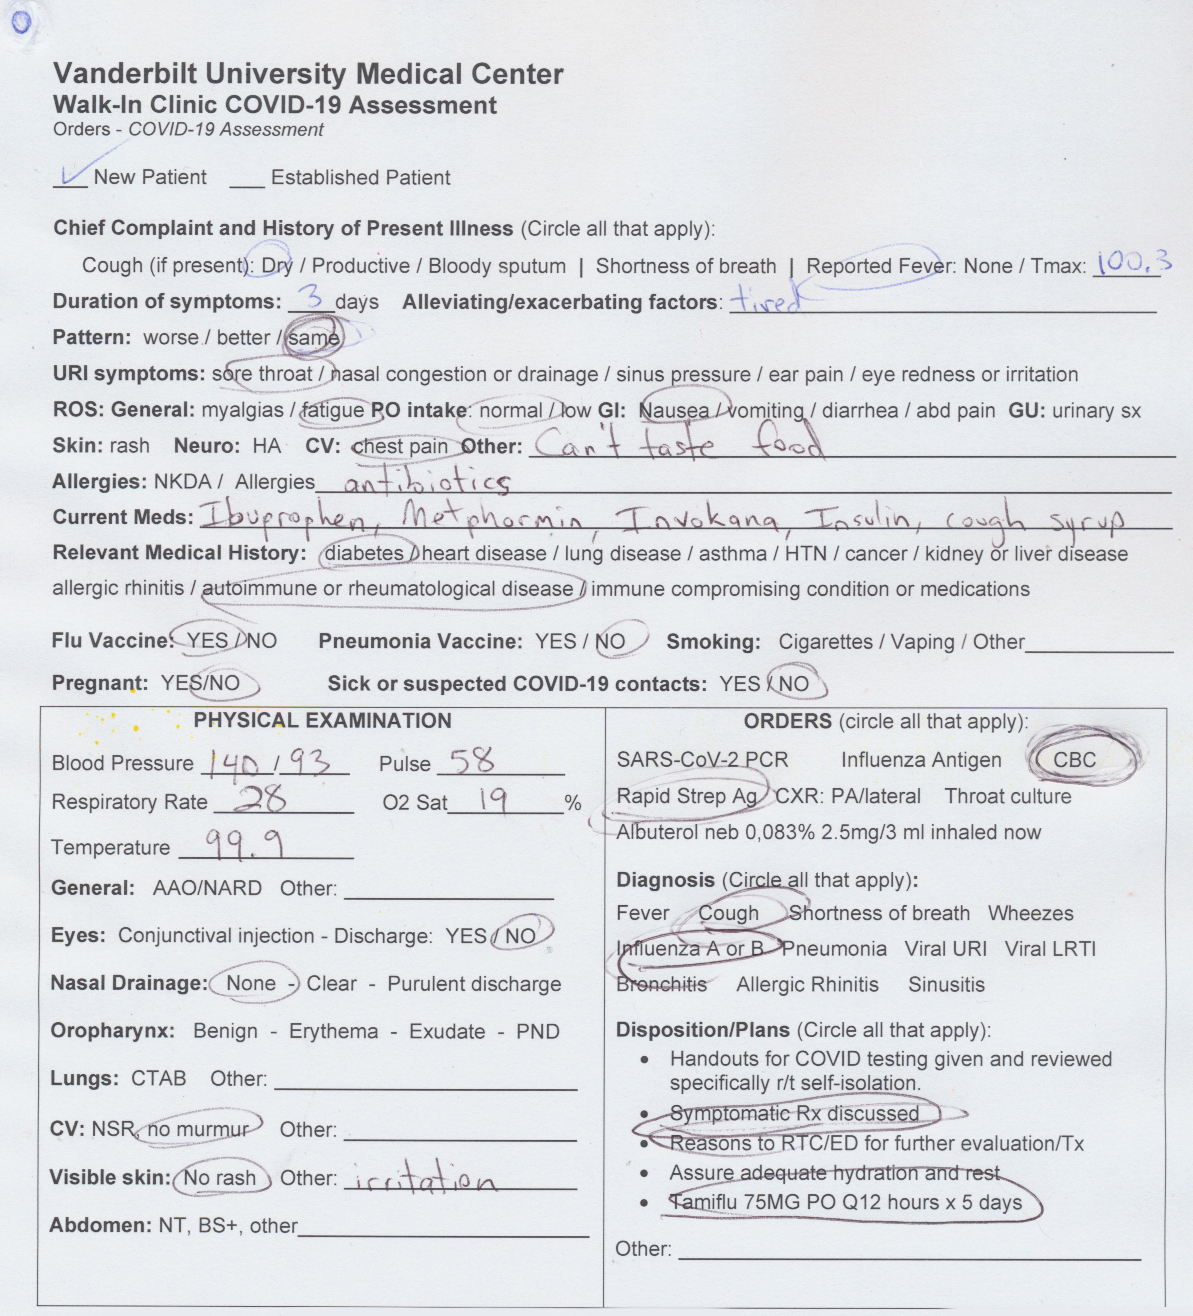 Vanderbilt University Medical Center
Walk-In Clinic COVID-19 Assessment
Orders - COVID-19 Assessment
___ New Patient ___ Established Patient
Chief Complaint and History of Present Illness (Circle all that apply):
Cough (if present): Dry / Productive / Bloody sputum | Shortness of breath | Reported Fever: None / Tmax: 100.3
Duration of symptoms: 3 days Alleviating/exacerbating factors: tired
Pattern: worse / better / same
URI symptoms: sore throat / nasal congestion or drainage / sinus pressure / ear pain / eye redness or irritation
ROS: General: myalgias / fatigue PO intake: normal / low GI: Nausea / vomiting / diarrhea / abd pain GU: urinary sx
Skin: rash Neuro: HA CV: chest pain Other: Can't taste food
Allergies: NKDA / Allergies antibiotics
Current Meds: Ibuprophen, Metphormin, Invokana, Insulin, cough syrup
Relevant Medical History: diabetes / heart disease / lung disease / asthma / HTN / cancer / kidney or liver disease
allergic rhinitis / autoimmune or rheumatological disease / immune compromising condition or medications
Flu Vaccine: YES / NO Pneumonia Vaccine: YES / NO Smoking: Cigarettes / Vaping / Other
Pregnant: YES/NO Sick or suspected COVID-19 contacts: YES / NO
PHYSICAL EXAMINATION
Blood Pressure 140 / 93 Pulse 58
Respiratory Rate 28 O2 Sat 19 %
Temperature 99.9
General: AAO/NARD Other:
Eyes: Conjunctival injection - Discharge: YES / NO
Nasal Drainage: None - Clear - Purulent discharge
Oropharynx: Benign - Erythema - Exudate - PND
Lungs: CTAB Other:
CV: NSR, no murmur Other:
Visible skin: No rash Other: irritation
Abdomen: NT, BS+, other
ORDERS (circle all that apply):
SARS-CoV-2 PCR Influenza Antigen CBC
Rapid Strep Ag CXR: PA/lateral Throat culture
Albuterol neb 0,083% 2.5mg/3 ml inhaled now
Diagnosis (Circle all that apply):
Fever Cough Shortness of breath Wheezes
Influenza A or B Pneumonia Viral URI Viral LRTI
Bronchitis Allergic Rhinitis Sinusitis
Disposition/Plans (Circle all that apply):
• Handouts for COVID testing given and reviewed
specifically r/t self-isolation.
• Symptomatic Rx discussed
• Reasons to RTC/ED for further evaluation/Tx
• Assure adequate hydration and rest
• Tamiflu 75MG PO Q12 hours x 5 days
Other: